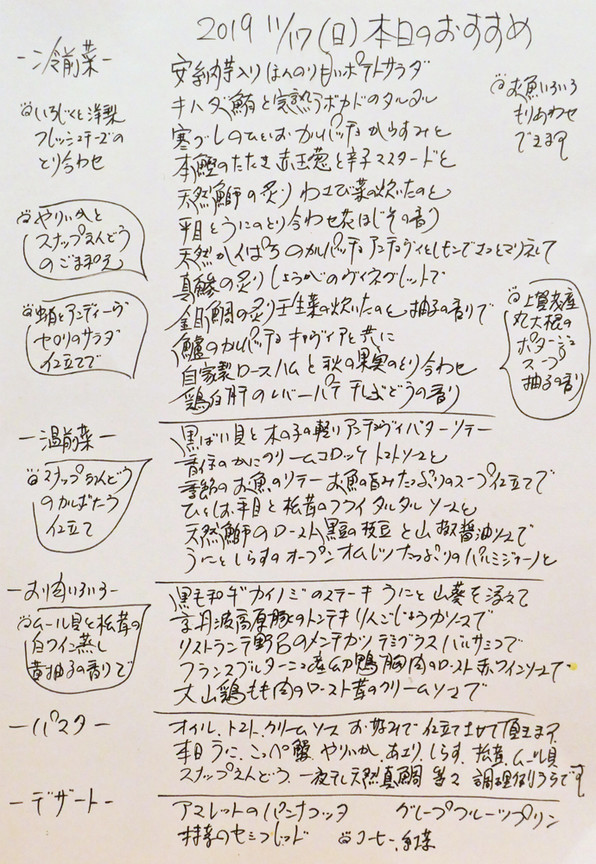 2019 11/17(日)本日のおすすめ
-冷前菜-
安納芋入り ほんのり甘いポテトサラダ
キハダ鮪と完熟アボカドのタルタル
寒ブリのひとしお カルパッチョ からすみと
本鰹のたたき 赤玉葱と辛子マスタードと
天然鰤の炙り わさび菜の炊いたのと
平目とうにのとり合わせ 花ほじその香り
天然かんぱちのカルパッチョ アンチョヴィとレモンでさっとマリネして
真鯵の炙り しょうがのヴィネグレットで
金目鯛の炙り 壬生菜の炊いたのと 柚子の香りで
鱸のカルパッチョ キャヴィアと共に
自家製ロースハムと秋の果実のとり合わせ
鶏白肝のレバーパテ 干しぶどうの香り
いちじくと洋梨
フレッシュチーズの
とり合わせ
やりいかと
スナップえんどう
のごま和え
蛸とアンディーヴ
セロリのサラダ
仕立てで
お魚いろいろ
もりあわせ
できます
上賀茂産
丸大根の
ポタージュ
スープ
柚子の香り
-温前菜-
黒ばい貝と木の子の軽いアンチョヴィバターソテー
香住のかにクリームコロッケ トマトソースと
季節のお魚のソテー お魚の旨みたっぷりのスープ仕立てで
ひとしお平目と松茸のフライ タルタルソースと
天然鰤のロースト 黒豆の枝豆と山椒醤油ソースで
うにとしらすのオープンオムレツ たっぷりのパルミジャーノと
スナップえんどう
のかんばたろう
仕立て
-お肉いろいろ-
黒毛和牛カイノミのステーキ うにと山葵を添えて
京丹波高原豚のトンテキ りんごじょうゆソースで
リストランテ野呂のメンチカツ デミグラスバルサミコで
フランスブルターニュ産幼鴨胸肉のロースト 赤ワインソースで
大山鶏もも肉のロースト 茸のクリームソースで
ムール貝と松茸の
白ワイン蒸し
黄柚子の香りで
-パスタ-
オイル、トマト、クリームソース お好みで仕立てさせて頂きます
本日 うに、こっペ蟹、やりいか、あさり、しらす、松茸、ムール貝
スナップえんどう、一夜干し天然真鯛 等々 調理例うらです
-デザート-
アマレットのパンナコッタ グレープフルーツプリン
セミフレッド コーヒー、紅茶